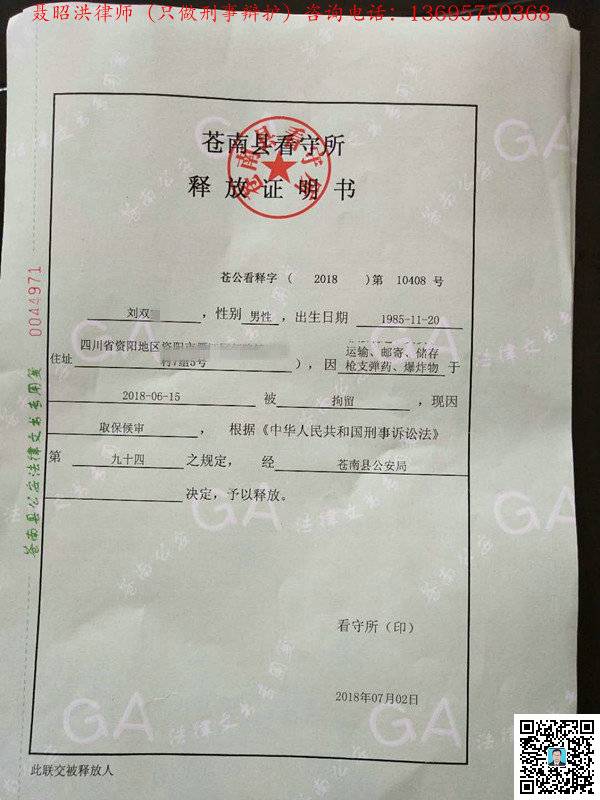 聂昭洪律师（只做刑事辩护）咨询电话：13695750368
苍南县看守所
释放证明书
苍公看释字（ 2018 ）第 10408 号
刘双 ，性别 男性 ，出生日期 1985-11-20
四川省资阳地区资阳市
住址 村7组5号 ），因 运输、邮寄、储存
枪支弹药、爆炸物 于
2018-06-15 被 拘留 ，现因
取保候审 ，根据《中华人民共和国刑事诉讼法》
第 九十四 之规定，经 苍南县公安局
决定，予以释放。
看守所（印）
2018年07月02日
此联交被释放人
0044971
苍南县公安法律文书专用笺
GA
苍南公安
法律文书专用笺